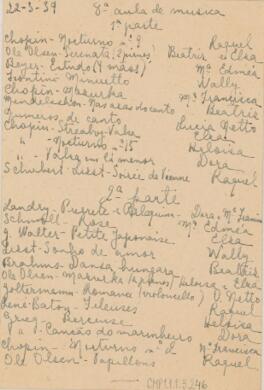 22-3-39 8ª aula de musica
1ª parte
Chopin - Nocturno nº 9 Raquel
Ole Olsen - Serenata (2 pianos) Beatriz e Elsa
Beyer - Estudo (3 mãos) Mª Edméa
Frontini - Minuetto Wally
Chopin - Mazurka Mª Francisca
Mendelssohn - Nas asas do canto Beatriz
Numeros de canto Lucia Netto
Chopin - Streabog - Valsa Elsa
" - Nocturno nº 15 Heloisa
" - Valsa em mi menor Dora
Schubert-Liszt - Soirée de Vienne Raquel
2ª parte
Landry - Pierrete - Dora e Mª Francisca
Schmoll - Rose Mª Edméa
J. Walter - Petite Japonaise Elsa
Liszt - Sonho de amor Wally
Brahms - Dansa hungara Beatriz
Ole Olsen - (2 pianos) Heloisa e Elsa
Goltermann - Romance (violoncello) O. Netto
René-Baton - Fileuses Raquel
Grieg - Berceuse Heloisa
" - Canção do marinheiro Dora
Chopin - Nocturno nº 2 Mª Francisca
Ole Olsen - Papillons Raquel